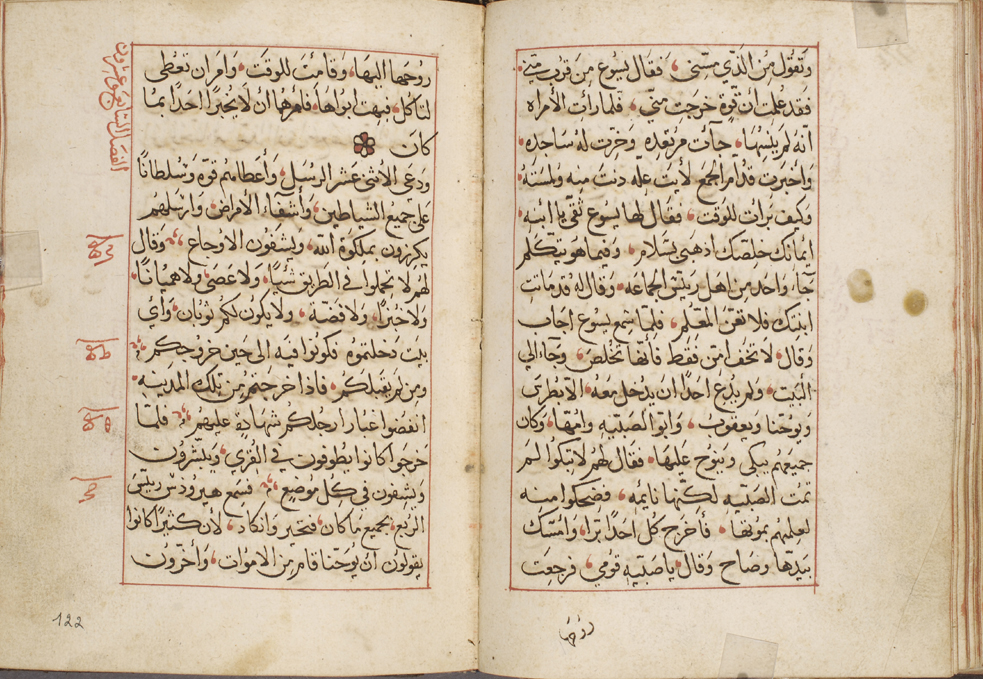 وتقول من الذي مسني، فقال يسوع من قرب مني
فقد علمت ان قوة خرجت مني، فلما رات الأمراه
انه لم ينسها، جآت مرتعده وخرت له ساجده
واخبرت قدام الجمع لأيت علّه دنت منه ولمسته
وكيف برات للوقت، فقال لها يسوع ثقي يا ابنه
ايمانك خلصك اذهبي بسلام، وفيما هو يتكلم
جآء واحد من اهل ريئس الجماعه، وقال له قد ماتت
ابنتك فلا تعن المعلم، فلما سمع يسوع اجاب
وقال لا تخف امن فقط فانها تخلص، وجآء الي
البيت، ولم يدع احدًا ان يدخل معه الا بطرس
ويوحنا ويعقوب، وابو الصبيّه وامّها، وكان
جميعهم يبكي وينوح عليها، فقال لهم لا تبكوا لم
تمت الصبيّه لكنها نايمه، فضحكوا منه
لعلمهم بموتها، فأخرج كل احدٍ برّا، وامسك
بيدها وصاح وقال يا صبيّه قومي، فرجعت
روحها
روحها اليها، وقامت للوقت، وامر ان تعطى
لتاكل، فبهت ابواها، فامرهما أن لا يخبرا احدًا بما
كان
ودعى الأثنى عشر الرسل، وأعطاهم قوّة وسلطانًا
على جميع الشياطين، وأشفاء الأمراض، وارسلهم
يكرزون بملكوة الله، ويشفون الاوجاع، وقال
لهم لا تحملوا في الطريق شيئًا، ولا عصى، ولا هميانًا
ولا خبزًا، ولا فضة، ولا يكون لكم ثوبان، وأي
بيت دخلتموه فكونوا فيه الى حين خروجكم
ومن لم يقبلكم، فاذا خرجتم من تلك المدينه
انفضوا غبار ارجلكم شهادة عليهم، فلما
خرجوا كانوا يطوفون في القري، ويبشرون
ويشفون في كل موضع، فسمع هيرودس رييس
الربع بجميع ما كان، فتحير وانكاد، لأن كثيرًا كانوا
يقولون ان يوحنا قام من الاموات، وأخرون
الفصل التاسع وعشرون
122